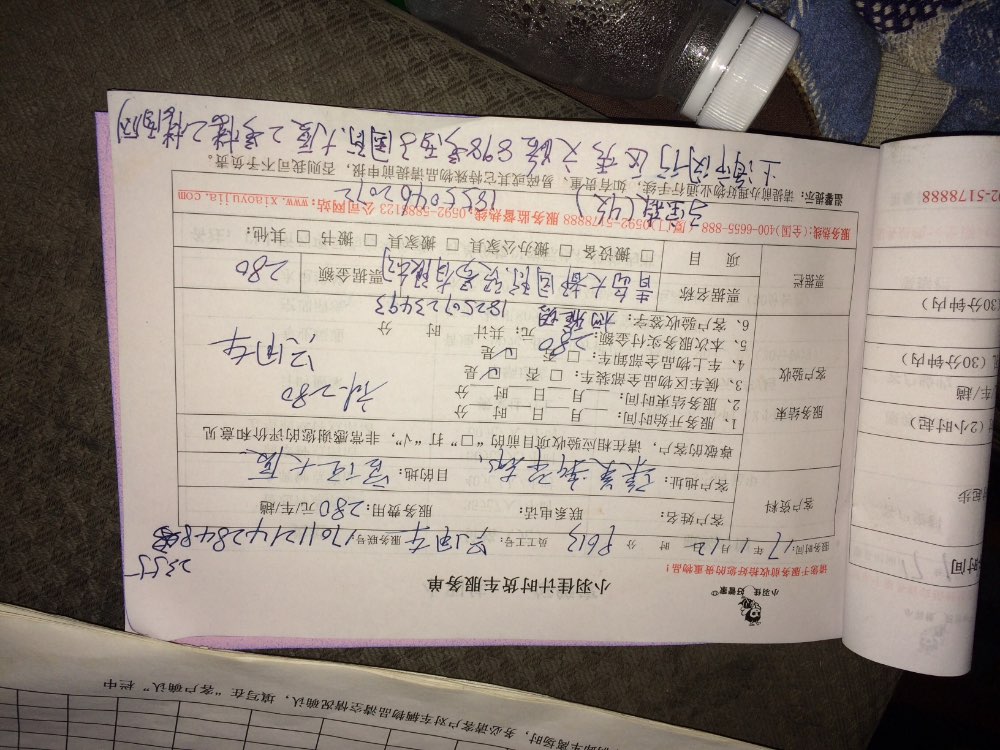 小羽佳 好管家
小羽佳计时货车服务单
请您于服务前收拾好您的贵重物品！
服务时间：17年1月12日 时 分 P613 员工工号： 服务联号
客户资料
客户姓名： 联系电话： 服务费用：280元/车/趟
客户地址： 目的地：
尊敬的客户，请在相应验收项目前的“□”打“√”，非常感谢您的评价和意见
服务结束
客户验收
1、服务开始时间： 月 日 时 分
2、服务结束时间： 月 日 时 分
3、候车区物品全部装车：□ 否 ☑ 是
4、车上物品全部卸车：□ 否 ☑ 是
5、本次服务实付金额：280元；共计 时 分
6、客户验收签字：
18250723493
补280
票据栏
票据名称 青岛大都国际贸易有限公司 票据金额 280
项目 □ 搬设备 □ 搬办公家具 □ 搬家具 □ 搬书 □ 其他：
服务热线：(全国)400-6655-888 (厦门)0592-5178888 服务监督热线：0592-5888123 公司网站：www.xiaoyujia.com
18550402012
温馨提示：请提前办理好物业通行手续，如有贵重、易碎或其它特殊物品请提前申报，否则我司不予负责。
上海市闵行区秀文路898号西子国际大厦2号楼2楼
92-5178888
(30分钟内)
(30分钟内)
车/趟
(2小时起)
起步
时间
务必请客户对车辆物品清空情况确认，填写在“客户确认”栏中